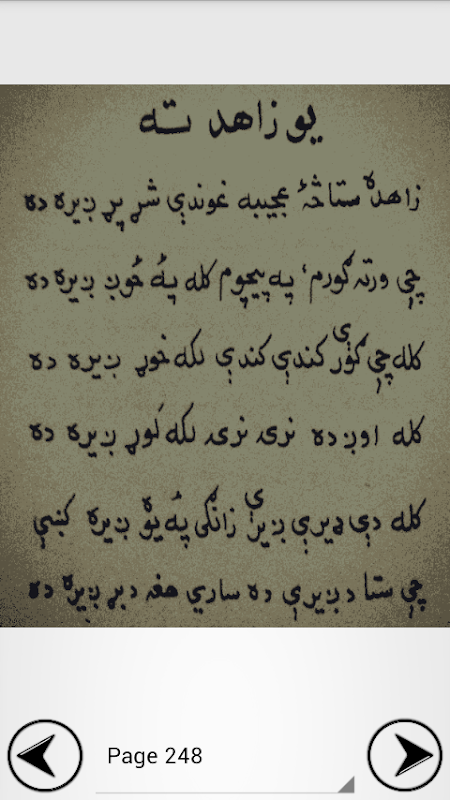 یو زاهد ته
زاهده ستا څهٔ عجیبه غوندې شړ پړ ږیره ده
چې ورته ګورم، په پیچومې کله پهٔ څوڼ ږیره ده
کله چې ګورې کندې کندې لکه خوړ ږیره ده
کله اوږده نری نری لکه لوړ ږیره ده
کله دې ډیرې ږیرې زانګی پهٔ یوه ږیره کښې
چې ستا د ږیرې ده سارې هغه دبړ ږیره ده
Page 248